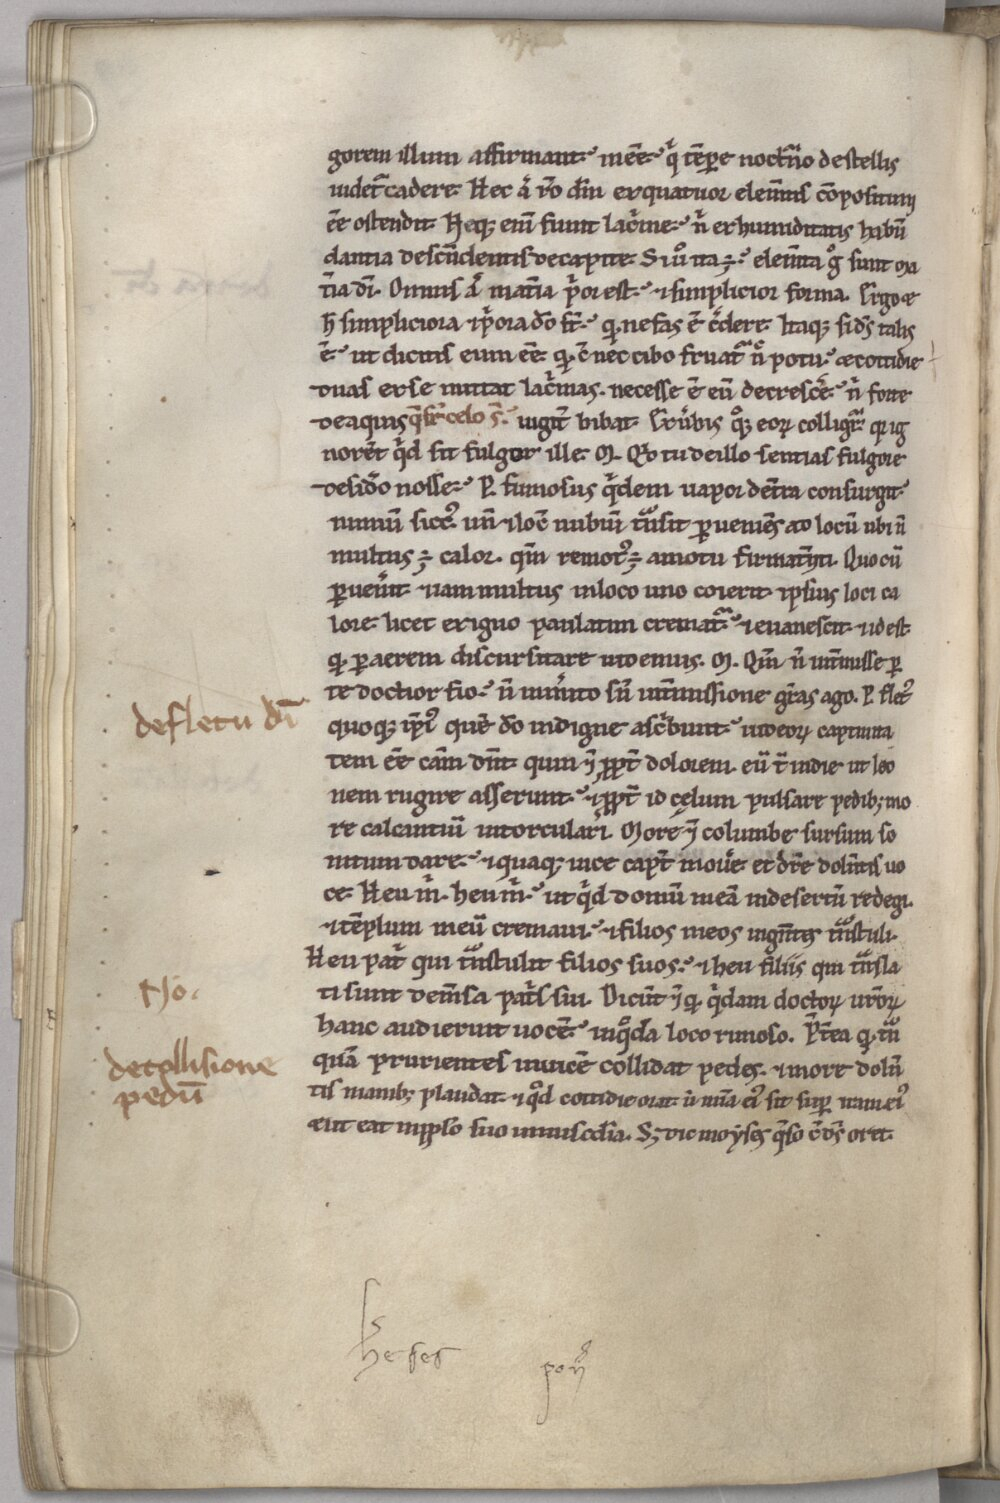 gorem illum affirmant. meēe. q̇ tēpꝑe noctͥno destellis
uidetͬ cadere. Hec aͥ ꝟo dm̄ exquatuor elem̄tis cōpositum
ēē ostendit. Neqꝫ enī sunt lacͥme. nͥ exhumiditatis habū
dantia descēdentis decapite. Si uͦ ita ÷. elem̄ta gͦ sunt ma
tīa dī. Omnis aͥ matīa pͥor est. ⁊ simplicior forma. Ergo ⁊
h̄ simpliciora ⁊ pͥora dō sͭ. qꝫ nefas ē cͥdere. Itaqꝫ si dͦs talis
ē. ut dicitis eum ēē. qꝫ c̄ nec cibo fruatͬ nͦ potu. ⁊ cottidie
duas exse mittat lacͥmas. necesse ē eū decrescͤe. nͥ forte
deaquis q̄ sͬ celo s̄. iugit̄ bibat. Exuͥbis qͦꝫ eoꝝ colligitͬ qꝫ ig
norēt qͥd sit fulgor ille. M. Qͥd tu deillo sentias fulgore
desidͦo nosse. P. Fumosus qͥdem uapor det̄ra consurgit.
nimiū siccꝰ. un̄ ⁊ locͫ nubiū tͣnsit ꝑueniēs ad locū ubi n̄
multus ÷ calor. qm̄ remotꝰ ÷ amotu firmam̄ti. Quo cū
ꝑuenͥit. ⁊ iam multus inloco uno coierit. ipsius loci ca
lore licet exiguo paulatim crematͬ. ⁊ euanescit. ⁊ id est
qꝫ ꝑaerem discursitare uidemus. M. Qm̄ n̄ intͥmisse ꝑ
te doctior fio. n̄ inmͥito sn̄ intͥmissione gͬas ago. P. Fletꝰ
quoqꝫ ip̄iꝰ quē dō indigne ascͥbunt. iudeoꝝ captiuita
tem ēē cām dn̄t. quin ⁊ ꝓpt̄ dolorem. eū t̄ indie ut leo
nem rugire asserunt. ⁊ ꝓpt̄ id cęlum pulsare pedibꝫ mo
re calcantiū intorculari. More ⁊ columbe sursum so
nitum dare. ⁊ quaqꝫ uice capͭ mouͤe. et dr̄e dol̄ntis uo
ce. Heu m̄. heu m̄. ut qͥd domū meā indesertū redegi.
⁊ tēplum meū cremaui. ⁊ filios meos ingn̄tes tͣnstuli.
Heu patͥ qui tͣnstulit filios suos. ⁊ heu filiis qui tͣnsla
ti sunt dem̄sa patͥs sui. Dicūt ⁊ qꝫ qͥdam doctoꝝ uͬoꝝ
hanc audierunt uocē. inqͦdā loco ruinoso. Pͬtea qꝫ tͣm
quā prurientes inuicē collidat pedes. ⁊ more dolū
tis manibꝫ plaudat. ⁊ qͦd cottidie orat ut mīa eiꝰ sit suꝑ iram eiꝰ
⁊ ut eat inpplo suo inmiscdīa. Sꝫ dic moyses q̄so cͫ dͦs oret.
defletu dī
No.
decollisione
pedū
heses